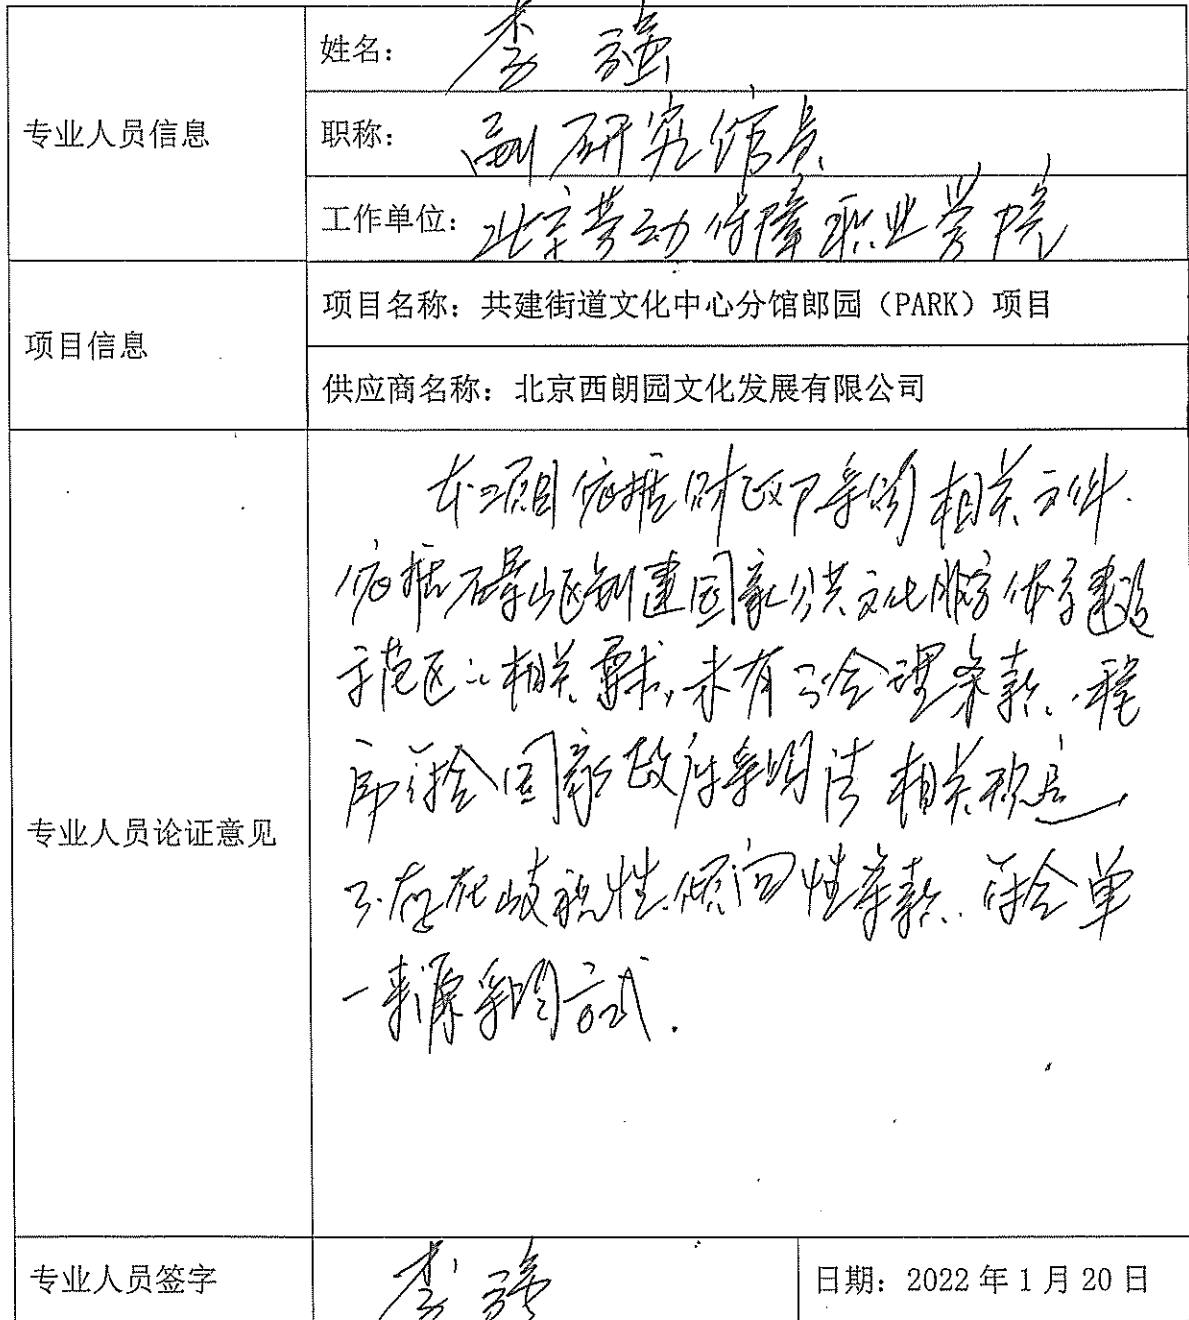 专业人员信息
姓名：李强
职称：副研究馆员
工作单位：北京劳动保障职业学院
项目信息
项目名称：共建街道文化中心分馆郎园（PARK）项目
供应商名称：北京西朗园文化发展有限公司
专业人员论证意见
本项目依据财政部采购相关文件.
依据石景山区创建国家公共文化服务体系建设
示范区之相关要求,未有不合理条款、程
序符合国家政府采购法相关规定,
不存在歧视性、倾向性条款.符合单
一来源采购方式.
专业人员签字
李强
日期：2022年1月20日